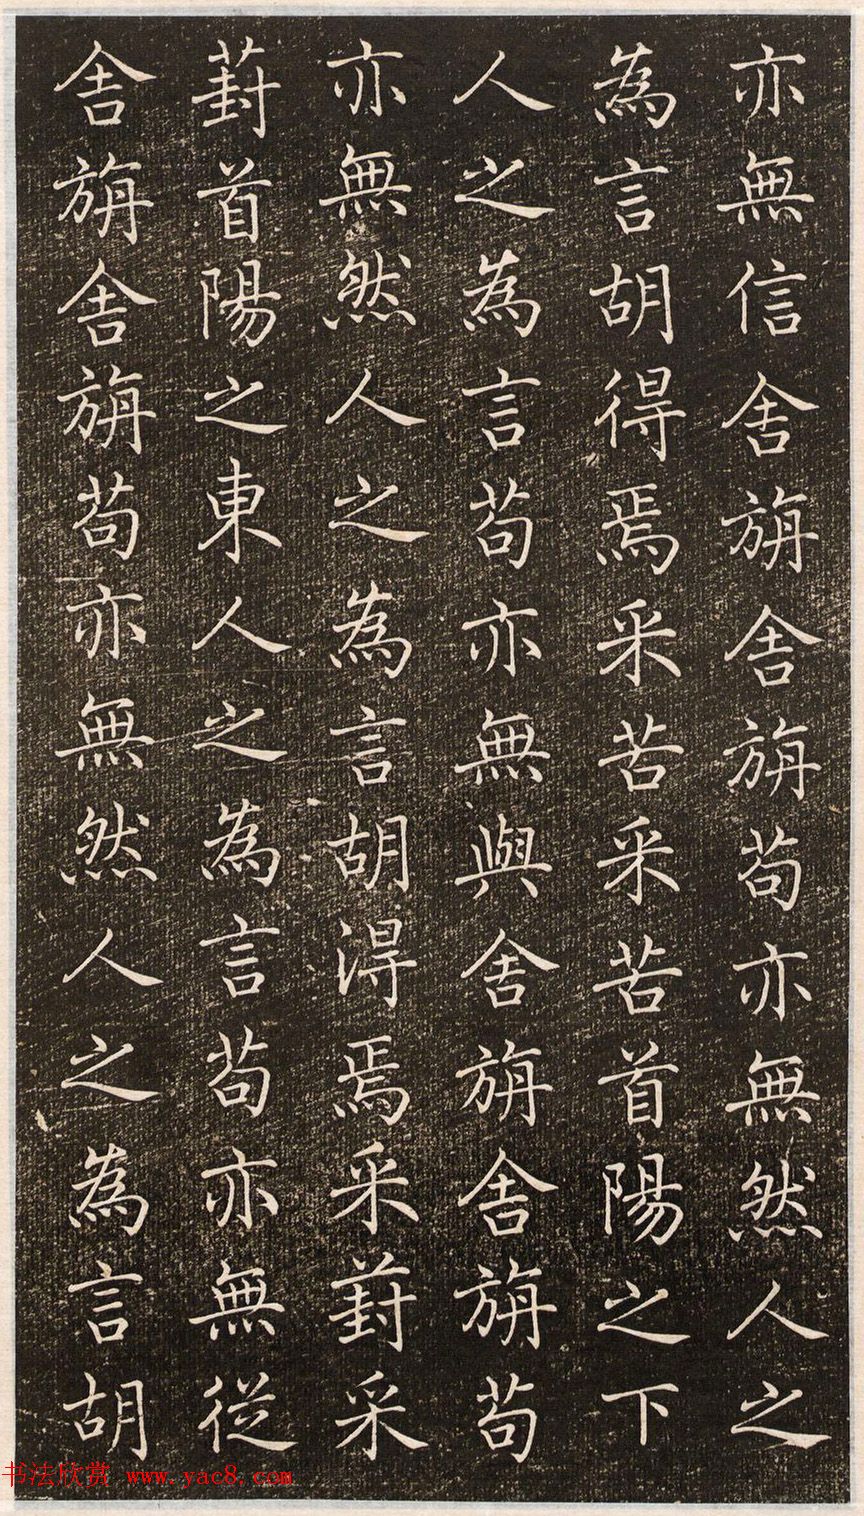 亦無信舍旃舍旃苟亦無然人之
為言胡得焉采苦采苦首陽之下
人之為言苟亦無與舍旃舍旃苟
亦無然人之為言胡得焉采葑采
葑首陽之東人之為言苟亦無從
舍旃舍旃苟亦無然人之為言胡
书法欣赏 www.yac8.com